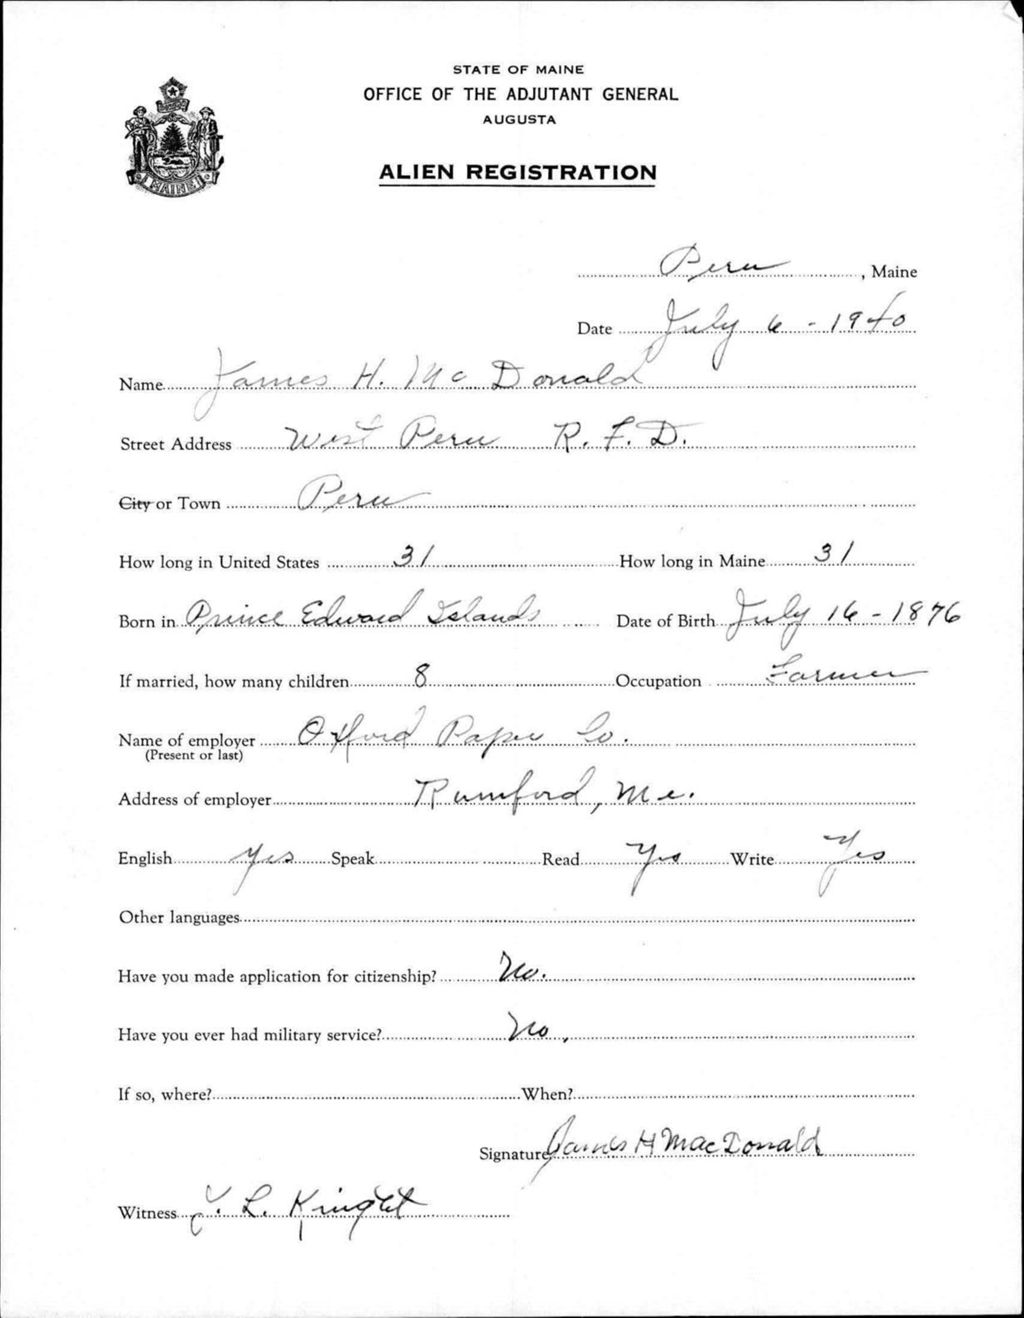 STATE OF MAINE
OFFICE OF THE ADJUTANT GENERAL
AUGUSTA
ALIEN REGISTRATION
MAINE
Peru, Maine
Date July 6 - 1940
Name James H. Mc Donald
Street Address West Peru R. F. D.
City or Town Peru
How long in United States 31 How long in Maine 31
Born in Prince Edward Islands Date of Birth July 16 - 1876
If married, how many children 8 Occupation Farmer
Name of employer Oxford Paper Co.
(Present or last)
Address of employer Rumford, Me.
English Yes Speak Read Yes Write Yes
Other languages
Have you made application for citizenship? No.
Have you ever had military service? No,
If so, where? When?
Signature James H MacDonald
Witness L. Knight